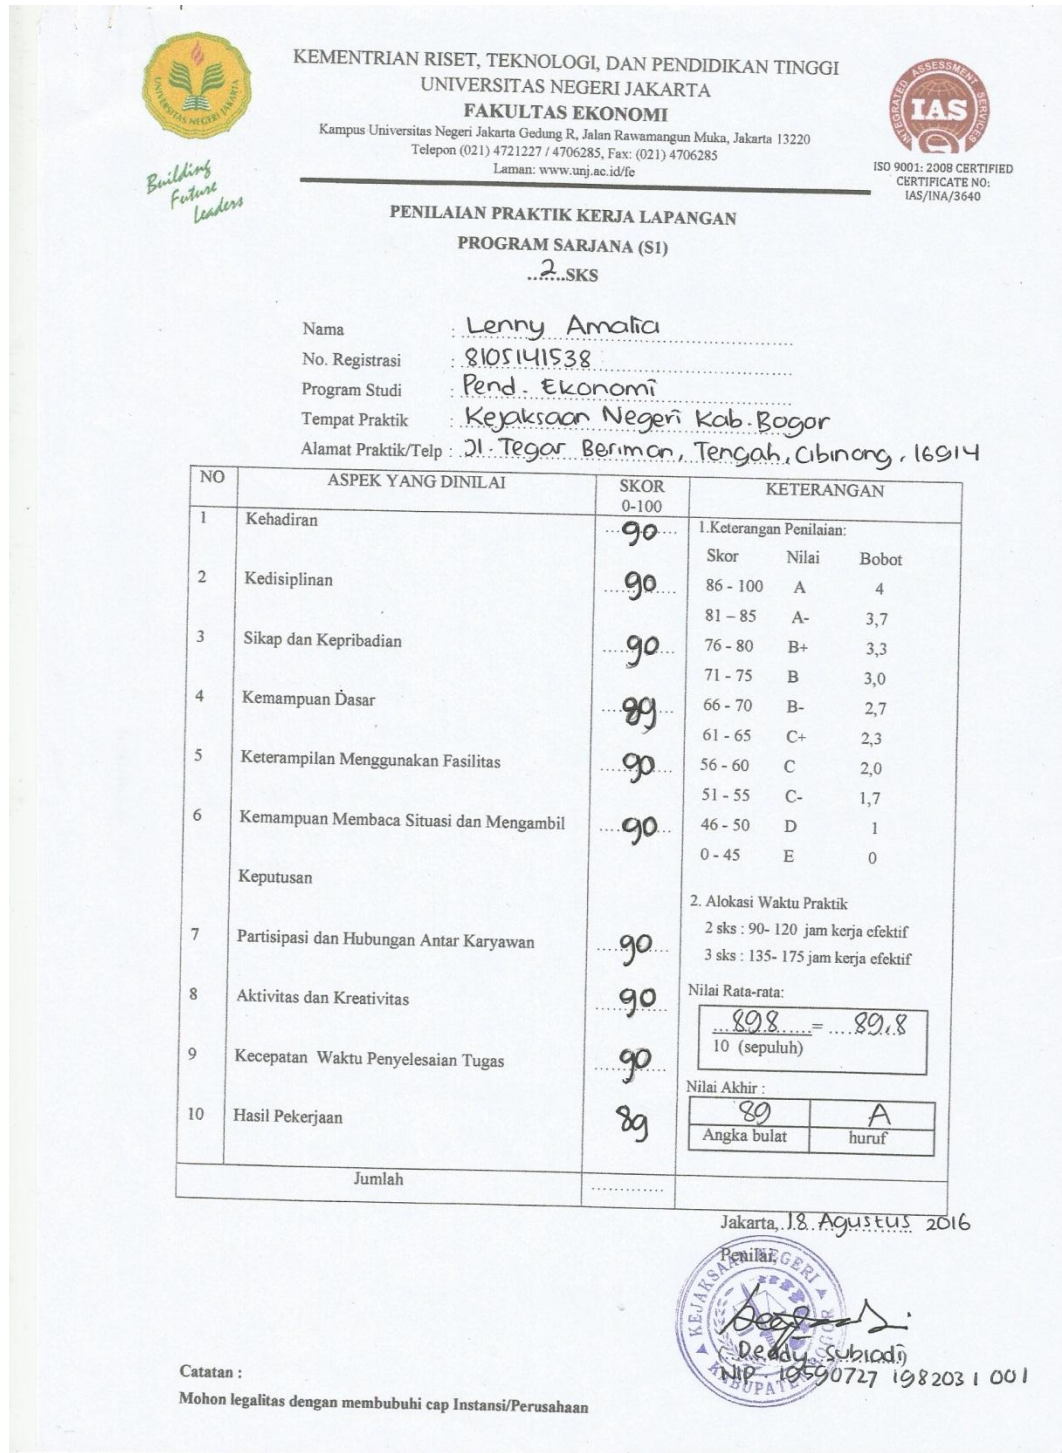 KEMENTRIAN RISET, TEKNOLOGI, DAN PENDIDIKAN TINGGI
UNIVERSITAS NEGERI JAKARTA
FAKULTAS EKONOMI
Kampus Universitas Negeri Jakarta Gedung R, Jalan Rawamangun Muka, Jakarta 13220
Telepon (021) 4721227 / 4706285, Fax: (021) 4706285
Laman: www.unj.ac.id/fe
UNIVERSITAS NEGERI JAKARTA
Building
Future
Leaders
INTEGRATED ASSESSMENT SERVICES
IAS
ISO 9001: 2008 CERTIFIED
CERTIFICATE NO:
IAS/INA/3640
PENILAIAN PRAKTIK KERJA LAPANGAN
PROGRAM SARJANA (S1)
...2....SKS
Nama : Lenny Amalia
No. Registrasi : 8105141538
Program Studi : Pend. Ekonomi
Tempat Praktik : Kejaksaan Negeri Kab. Bogor
Alamat Praktik/Telp : Jl. Tegar Beriman, Tengah, Cibinong, 16914
NO ASPEK YANG DINILAI SKOR 0-100 KETERANGAN
1 Kehadiran 90
2 Kedisiplinan 90
3 Sikap dan Kepribadian 90
4 Kemampuan Dasar 89
5 Keterampilan Menggunakan Fasilitas 90
6 Kemampuan Membaca Situasi dan Mengambil 90
Keputusan
7 Partisipasi dan Hubungan Antar Karyawan 90
8 Aktivitas dan Kreativitas 90
9 Kecepatan Waktu Penyelesaian Tugas 90
10 Hasil Pekerjaan 89
Jumlah .............
1.Keterangan Penilaian:
Skor Nilai Bobot
86 - 100 A 4
81 – 85 A- 3,7
76 - 80 B+ 3,3
71 - 75 B 3,0
66 - 70 B- 2,7
61 - 65 C+ 2,3
56 - 60 C 2,0
51 - 55 C- 1,7
46 - 50 D 1
0 - 45 E 0
2. Alokasi Waktu Praktik
2 sks : 90- 120 jam kerja efektif
3 sks : 135- 175 jam kerja efektif
Nilai Rata-rata:
898 = 89,8
10 (sepuluh)
Nilai Akhir :
89 A
Angka bulat huruf
Jakarta, 18 Agustus 2016
Penilai,
KEJAKSAAN NEGERI
KABUPATEN BOGOR
( Deddy Subiadi)
NIP. 19590727 198203 1 001
Catatan :
Mohon legalitas dengan membubuhi cap Instansi/Perusahaan